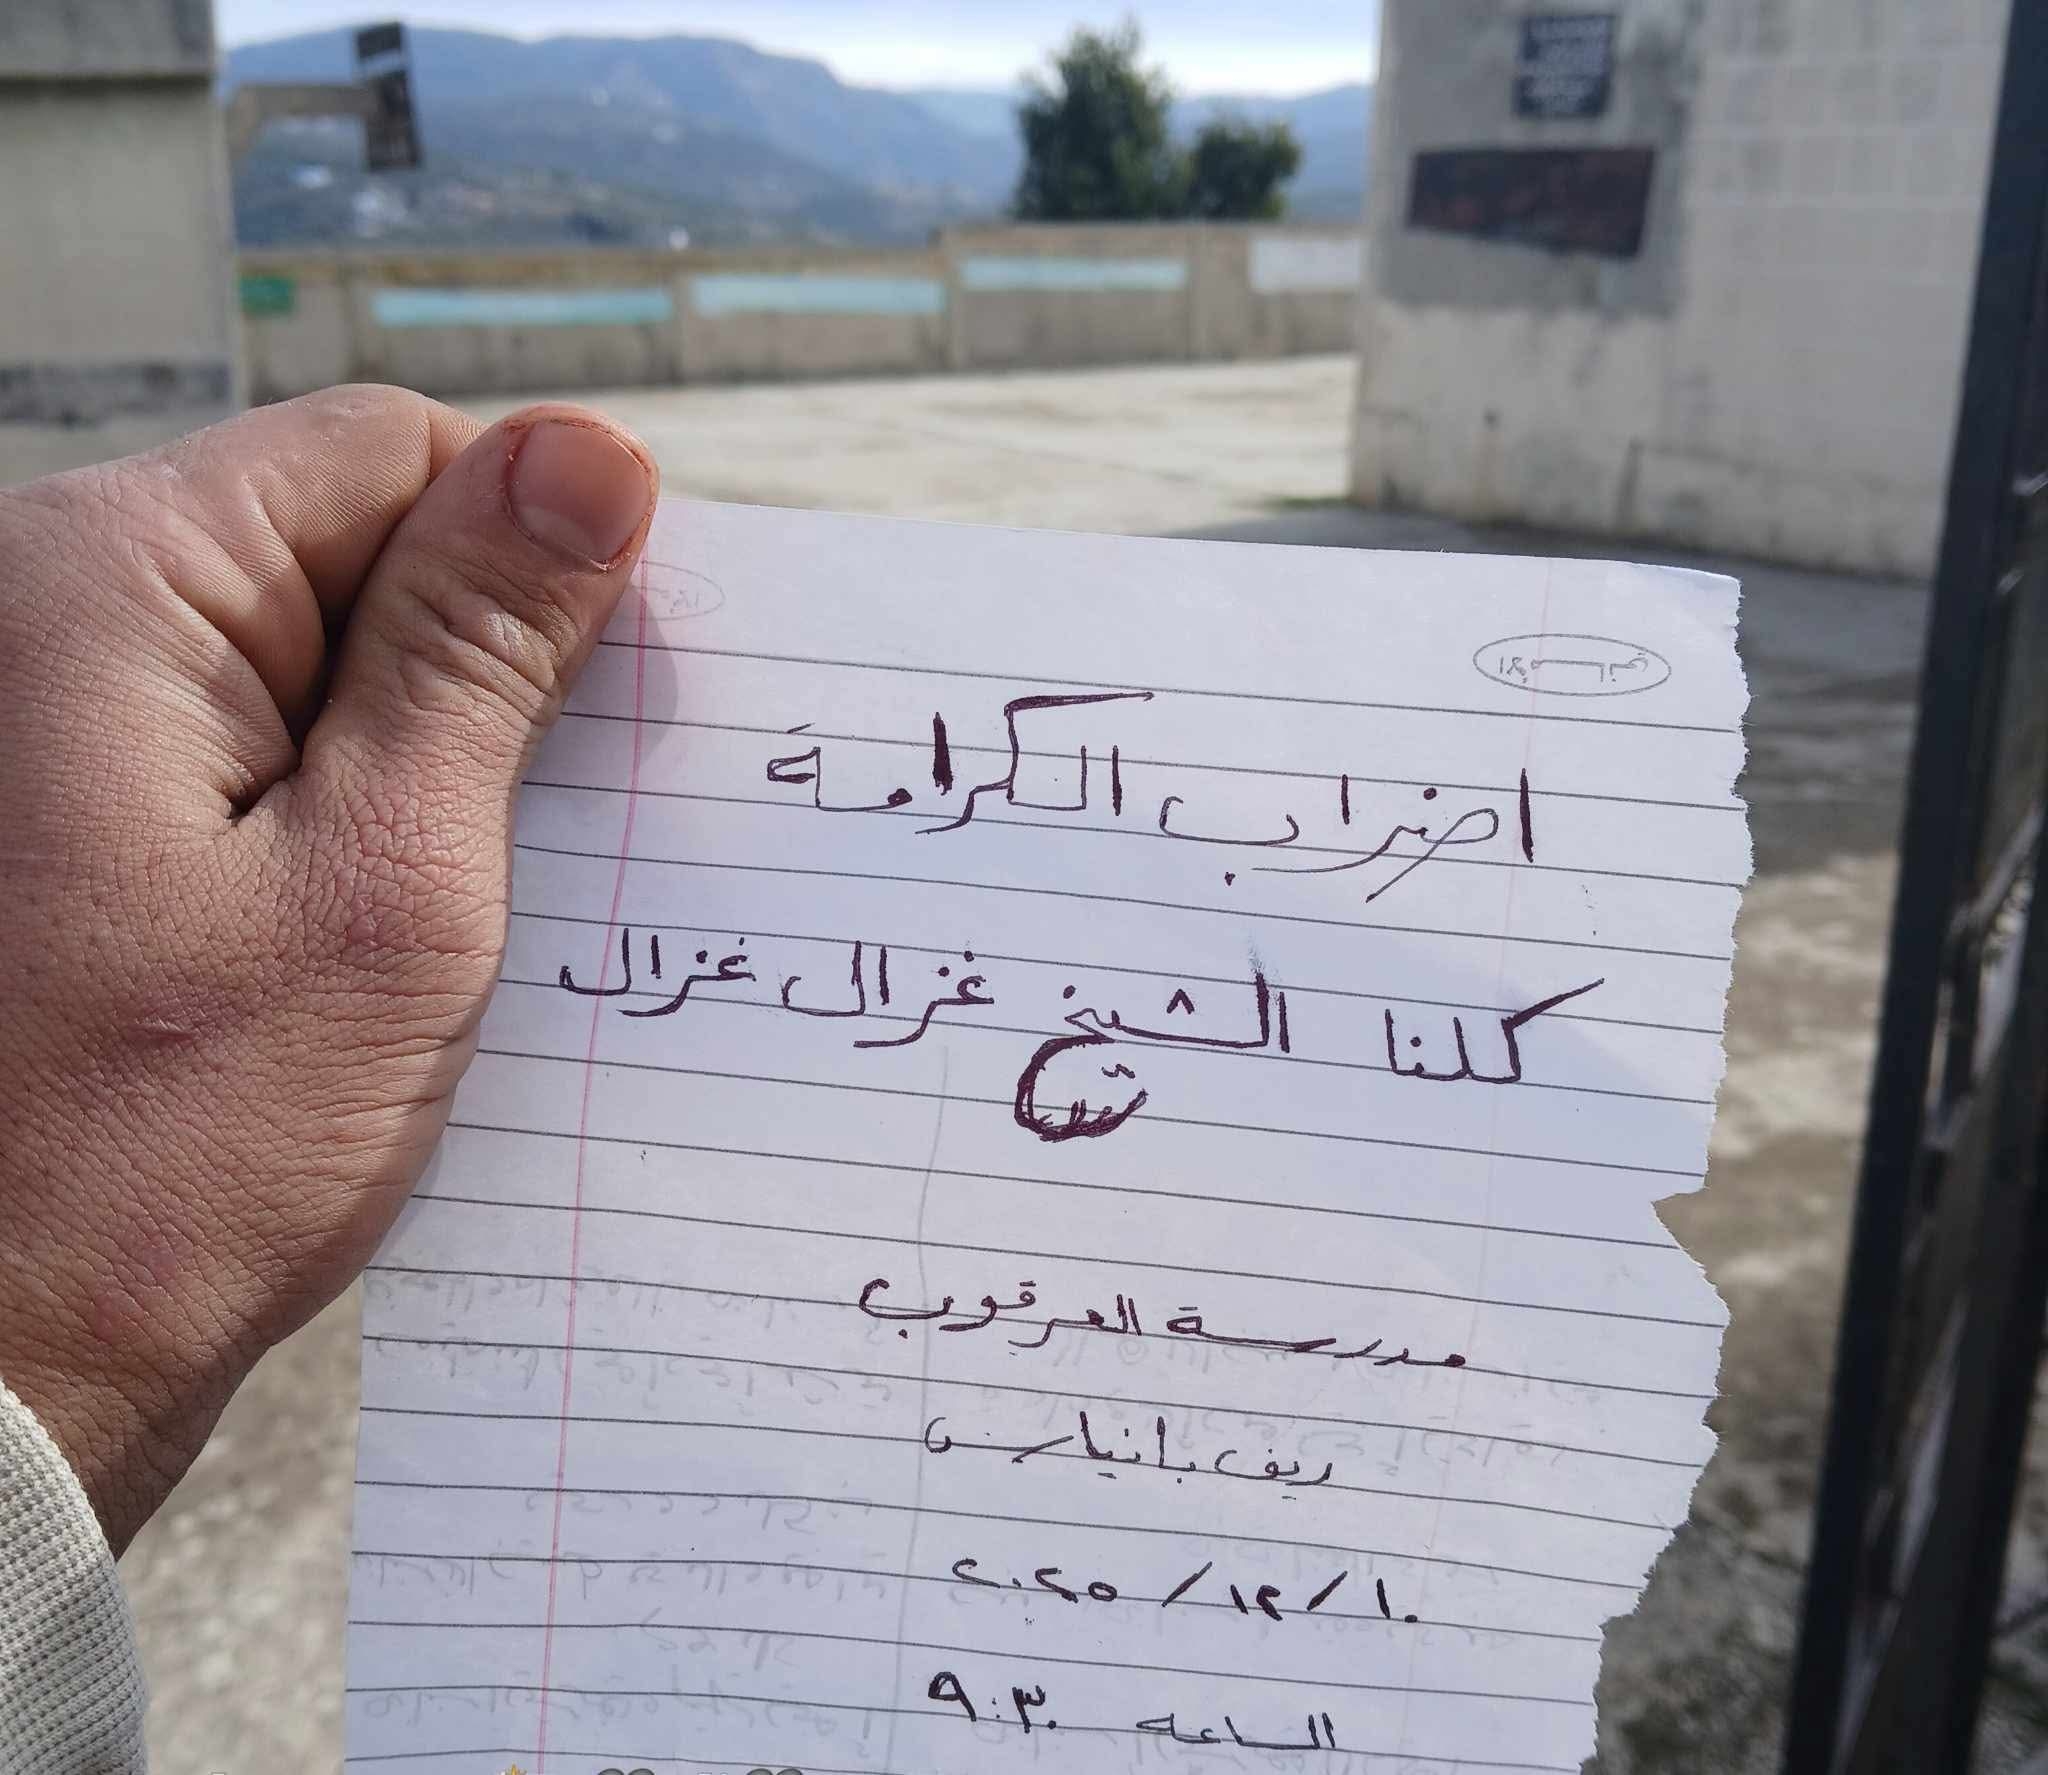 اضراب الكرامة
كلنا الشيخ غزال غزال
مدرسة العرقوب
ريف بانياس
١٠/١٢/٢٠٢٥
الساعه ٩:٣٠